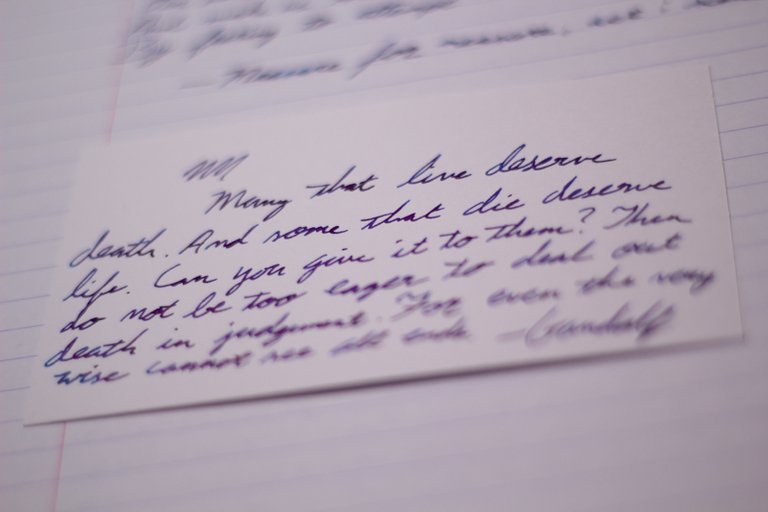 Measure for measure,
Many that live deserve
death. And some that die deserve
life. Can you give it to them? Then
do not be too eager to deal out
death in judgement. For even the very
wise cannot see all ends. —Gandalf